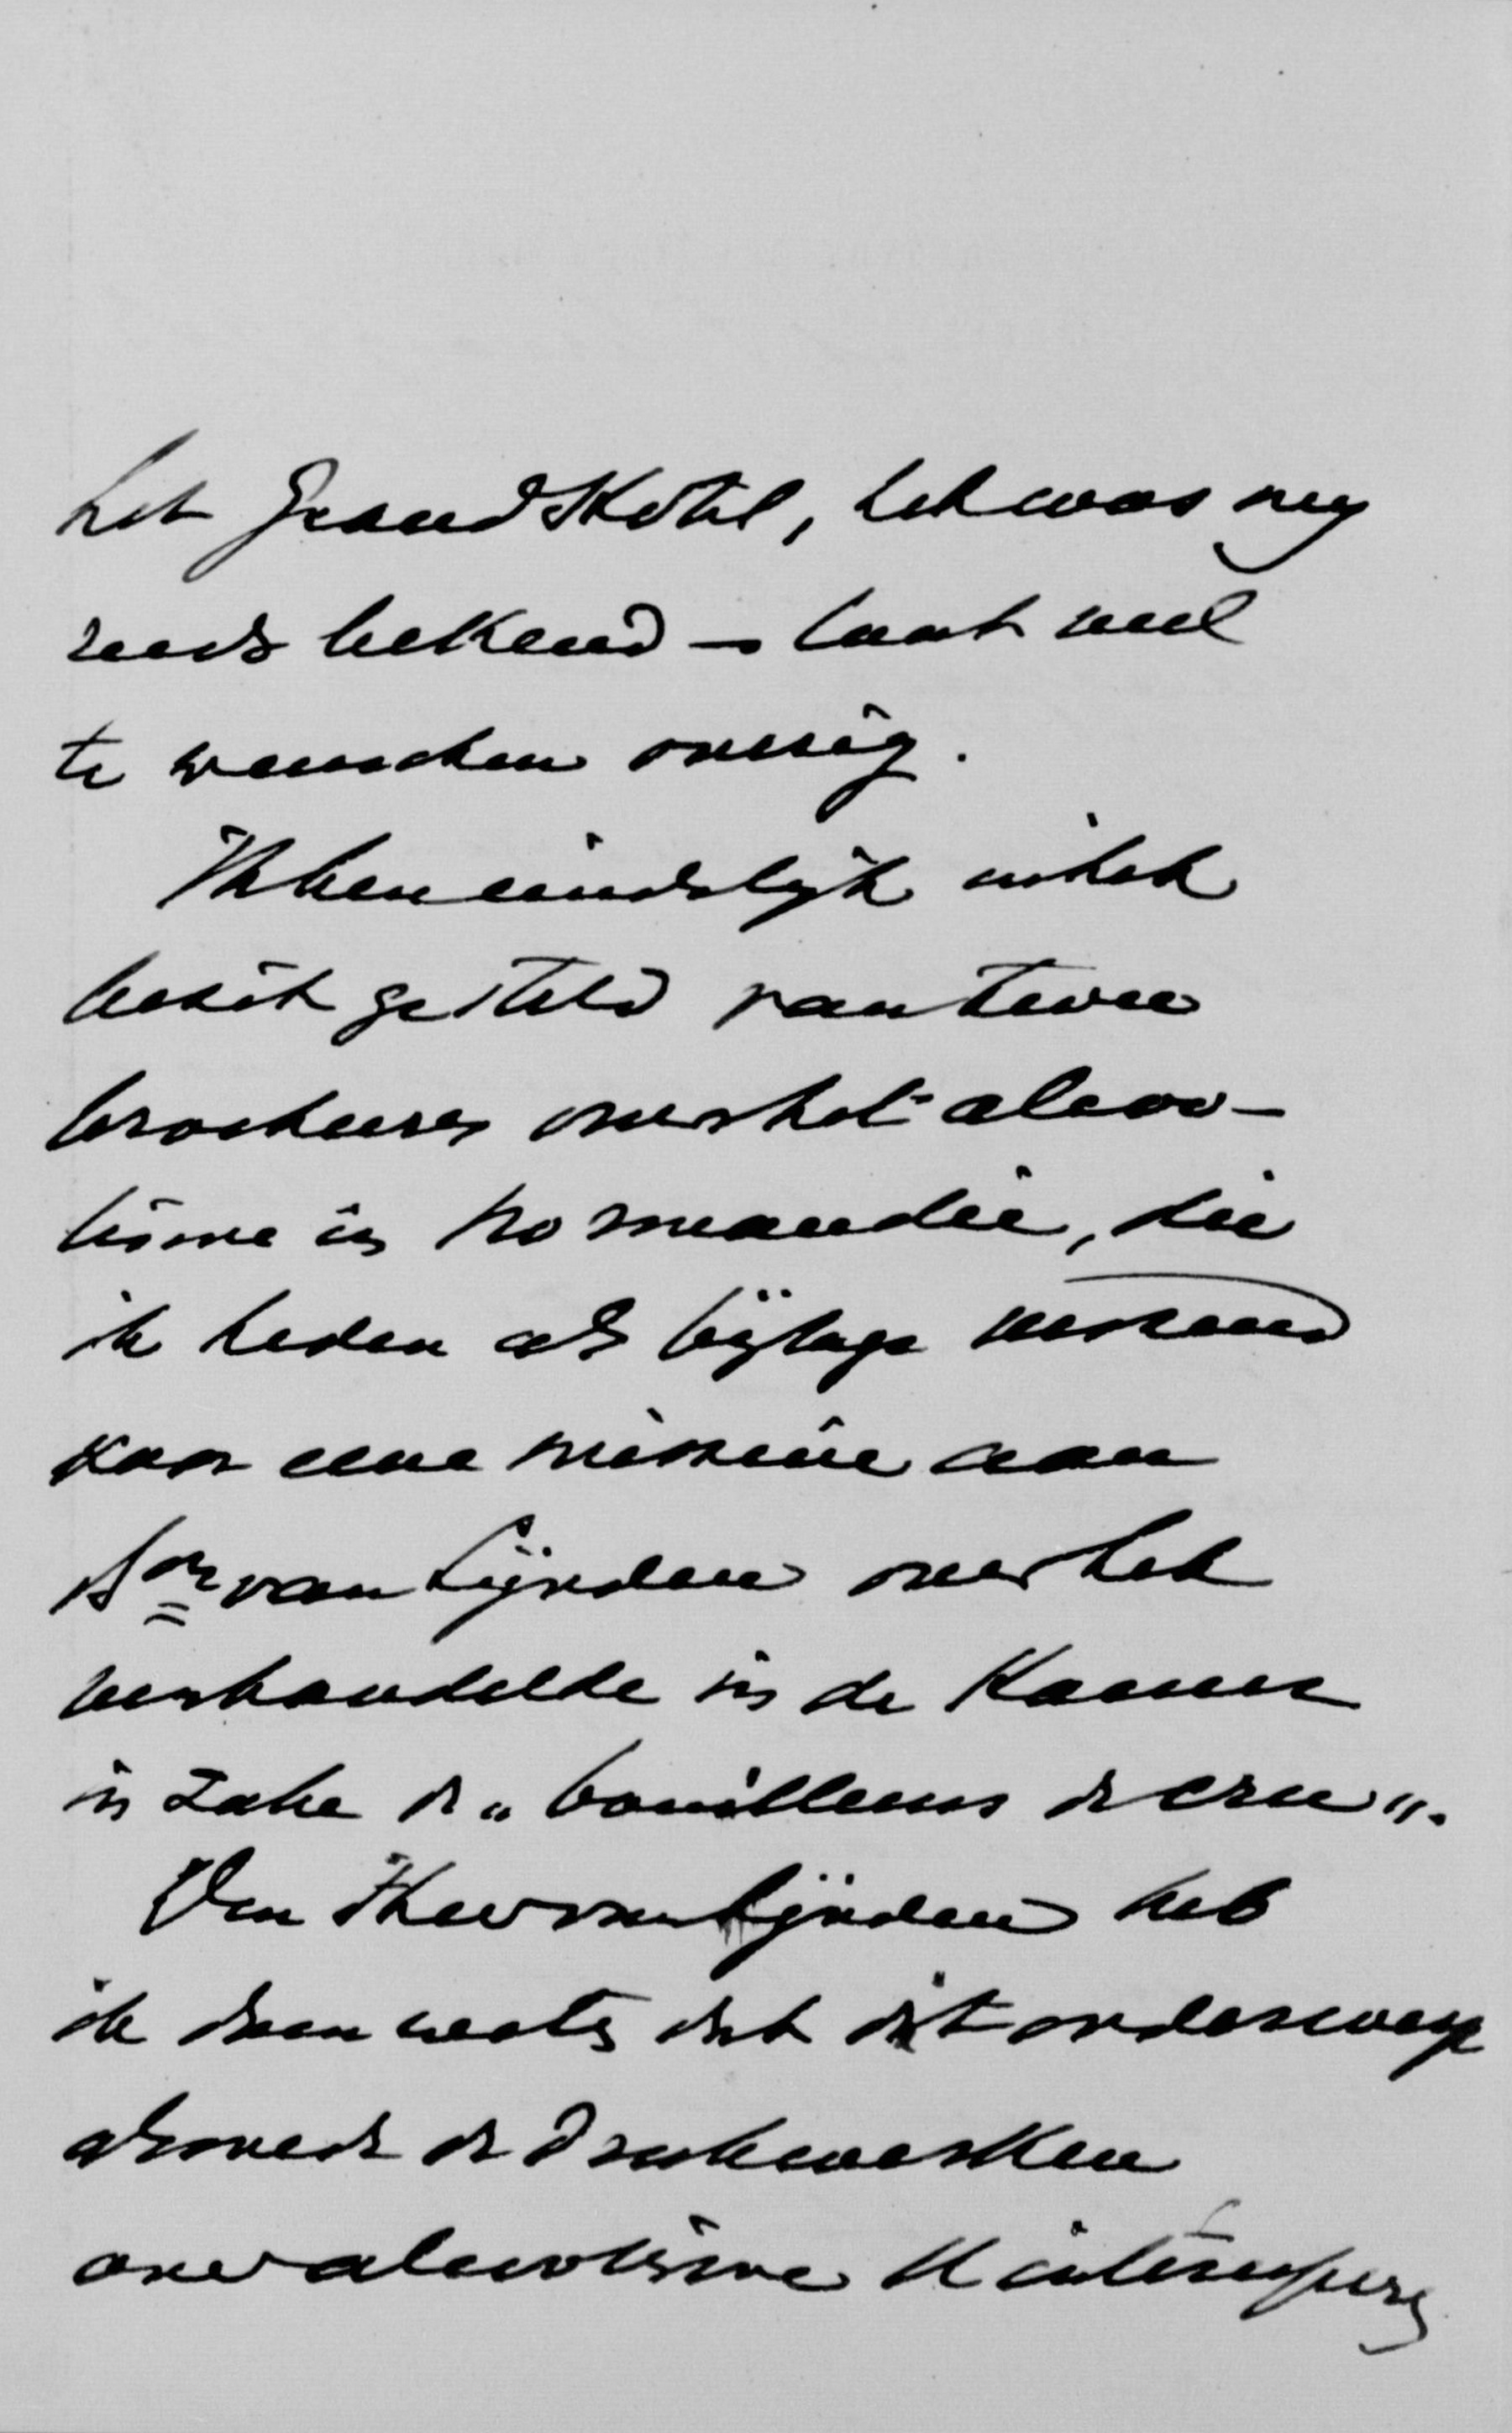 het Grand Hôtel, het was my
reeds bekend – laat veel
te wenschen overig.
Ik ben eindelijk in het
bezit gesteld van twee
brochures over het alcoo-
lisme in Normandië, die
ik heden als bijlage verzend
voor eene missive aan
Bon van Lijnden over het
verhandelde in de Kamer
in zake de „bouilleurs de cru".
Den Heer van Lijnden heb
ik doen weten dat dit onderwerp
alsmede de drukwerken
over alcoolisme